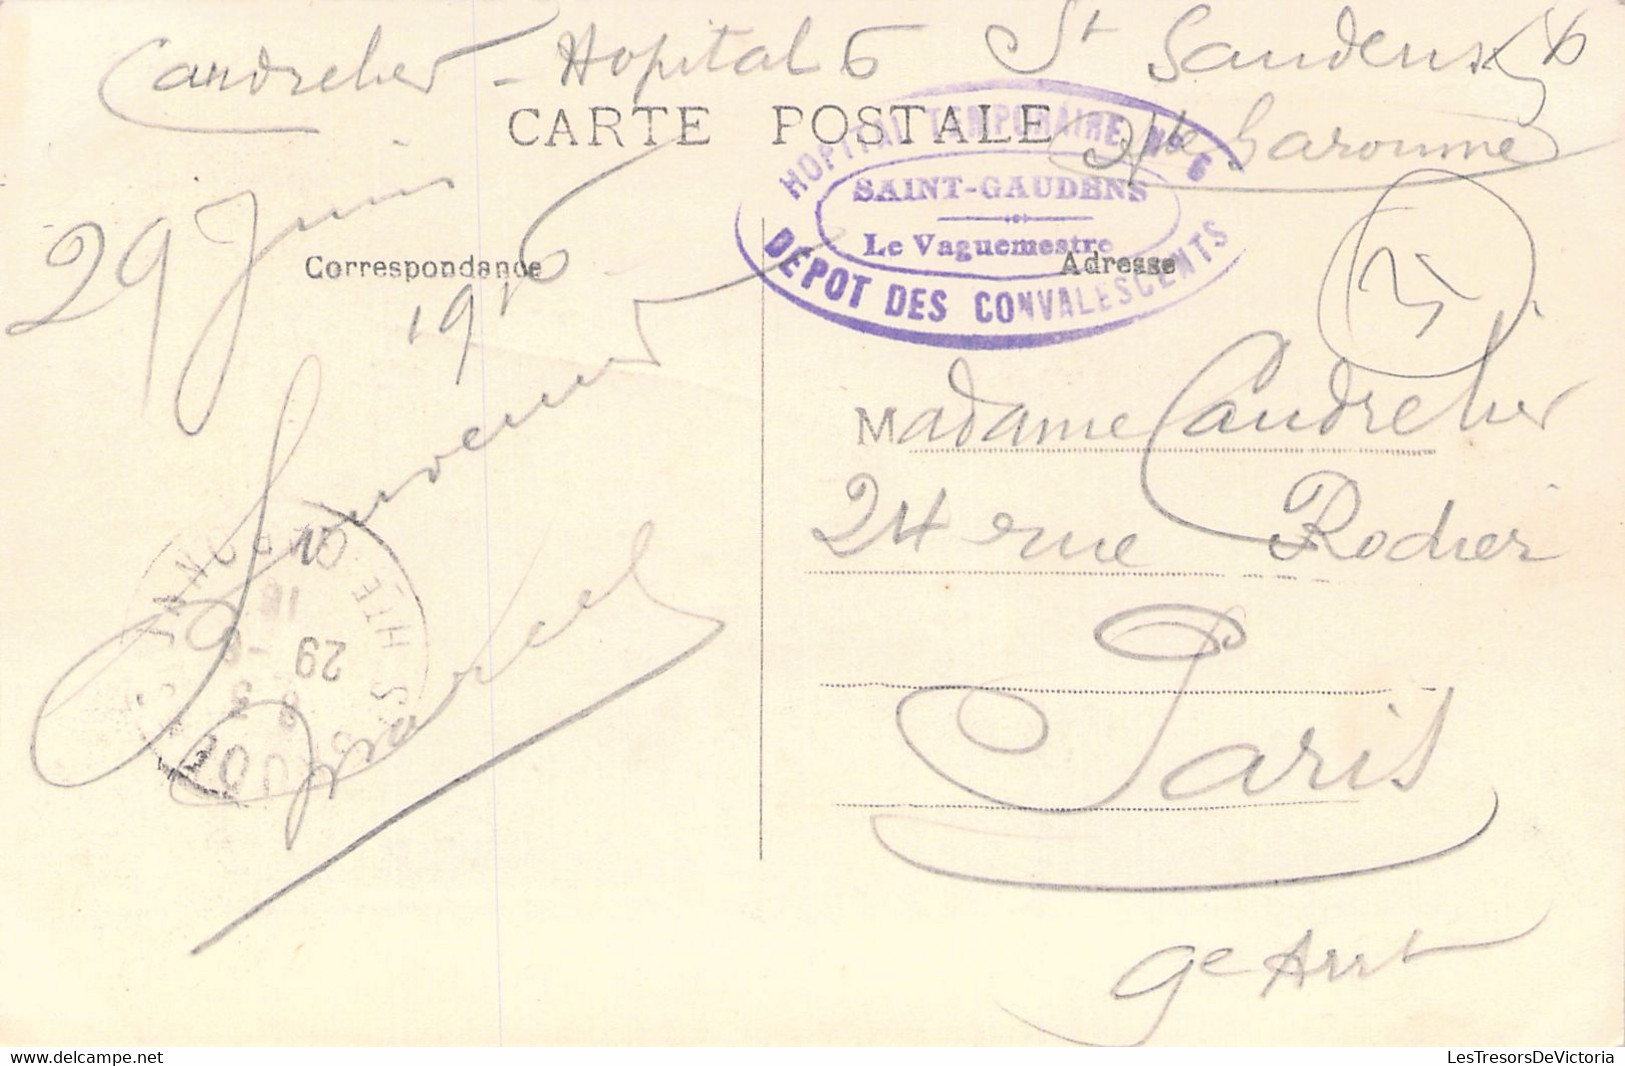 Caudrelier - Hopital 6 St Gaudens
Hte Garonne
CARTE POSTALE
HOPITAL TEMPORAIRE No 6
SAINT-GAUDENS
Le Vaguemestre
DÉPÔT DES CONVALESCENTS
29 Juin
1916
Correspondance
Adresse
Souvenir
Marcel
HTE-GARONNE
29 -6
16
Madame Caudrelier
24 rue Rodier
Paris
9e Arrt
LesTresorsDeVictoria
www.delcampe.net